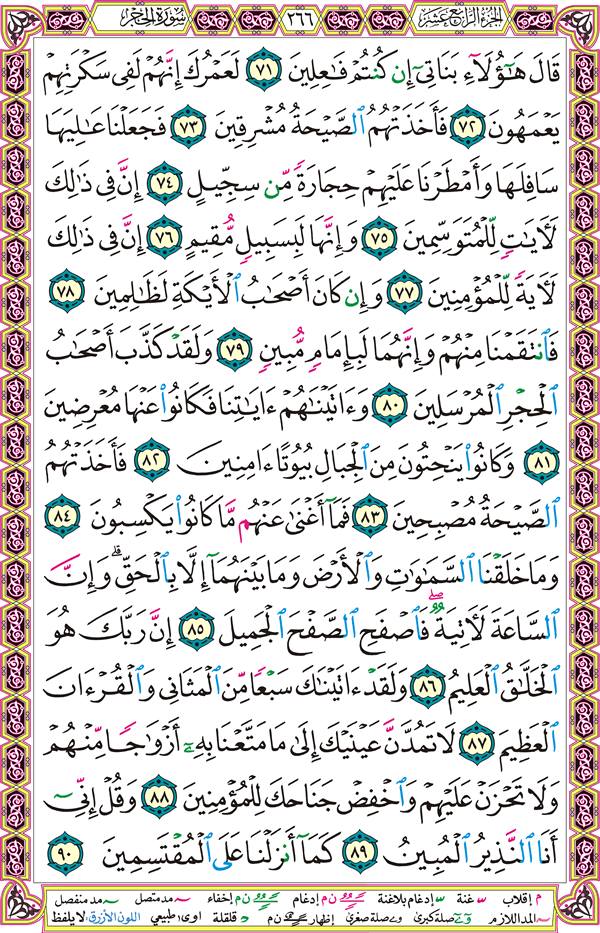 الجزء الرابع عشر ٢٦٦ سورة الحجر
قَالَ هَٰٓؤُلَآءِ بَنَاتِىٓ إِن كُنتُمْ فَٰعِلِينَ ٧١ لَعَمْرُكَ إِنَّهُمْ لَفِى سَكْرَتِهِمْ
يَعْمَهُونَ ٧٢ فَأَخَذَتْهُمُ ٱلصَّيْحَةُ مُشْرِقِينَ ٧٣ فَجَعَلْنَا عَٰلِيَهَا
سَافِلَهَا وَأَمْطَرْنَا عَلَيْهِمْ حِجَارَةً مِّن سِجِّيلٍ ٧٤ إِنَّ فِى ذَٰلِكَ
لَءَايَٰتٍ لِّلْمُتَوَسِّمِينَ ٧٥ وَإِنَّهَا لَبِسَبِيلٍ مُّقِيمٍ ٧٦ إِنَّ فِى ذَٰلِكَ
لَءَايَةً لِّلْمُؤْمِنِينَ ٧٧ وَإِن كَانَ أَصْحَٰبُ ٱلْأَيْكَةِ لَظَٰلِمِينَ ٧٨
فَٱنتَقَمْنَا مِنْهُمْ وَإِنَّهُمَا لَبِإِمَامٍ مُّبِينٍ ٧٩ وَلَقَدْ كَذَّبَ أَصْحَٰبُ
ٱلْحِجْرِ ٱلْمُرْسَلِينَ ٨٠ وَءَاتَيْنَٰهُمْ ءَايَٰتِنَا فَكَانُوا۟ عَنْهَا مُعْرِضِينَ
٨١ وَكَانُوا۟ يَنْحِتُونَ مِنَ ٱلْجِبَالِ بُيُوتًا ءَامِنِينَ ٨٢ فَأَخَذَتْهُمُ
ٱلصَّيْحَةُ مُصْبِحِينَ ٨٣ فَمَآ أَغْنَىٰ عَنْهُم مَّا كَانُوا۟ يَكْسِبُونَ ٨٤
وَمَا خَلَقْنَا ٱلسَّمَٰوَٰتِ وَٱلْأَرْضَ وَمَا بَيْنَهُمَآ إِلَّا بِٱلْحَقِّ ۗ وَإِنَّ
ٱلسَّاعَةَ لَءَاتِيَةٌ ۖ فَٱصْفَحِ ٱلصَّفْحَ ٱلْجَمِيلَ ٨٥ إِنَّ رَبَّكَ هُوَ
ٱلْخَلَّٰقُ ٱلْعَلِيمُ ٨٦ وَلَقَدْ ءَاتَيْنَٰكَ سَبْعًا مِّنَ ٱلْمَثَانِى وَٱلْقُرْءَانَ
ٱلْعَظِيمَ ٨٧ لَا تَمُدَّنَّ عَيْنَيْكَ إِلَىٰ مَا مَتَّعْنَا بِهِۦٓ أَزْوَٰجًا مِّنْهُمْ
وَلَا تَحْزَنْ عَلَيْهِمْ وَٱخْفِضْ جَنَاحَكَ لِلْمُؤْمِنِينَ ٨٨ وَقُلْ إِنِّىٓ
أَنَا ٱلنَّذِيرُ ٱلْمُبِينُ ٨٩ كَمَآ أَنزَلْنَا عَلَى ٱلْمُقْتَسِمِينَ ٩٠
م إقلاب غنة إدغام بلاغنة ن م إدغام ن م إخفاء مد متصل مد منفصل
المد اللازم صلة كبرى صلة صغرى إظهار ن م قلقلة اوى طبيعي اللون الأزرق: لا يلفظ